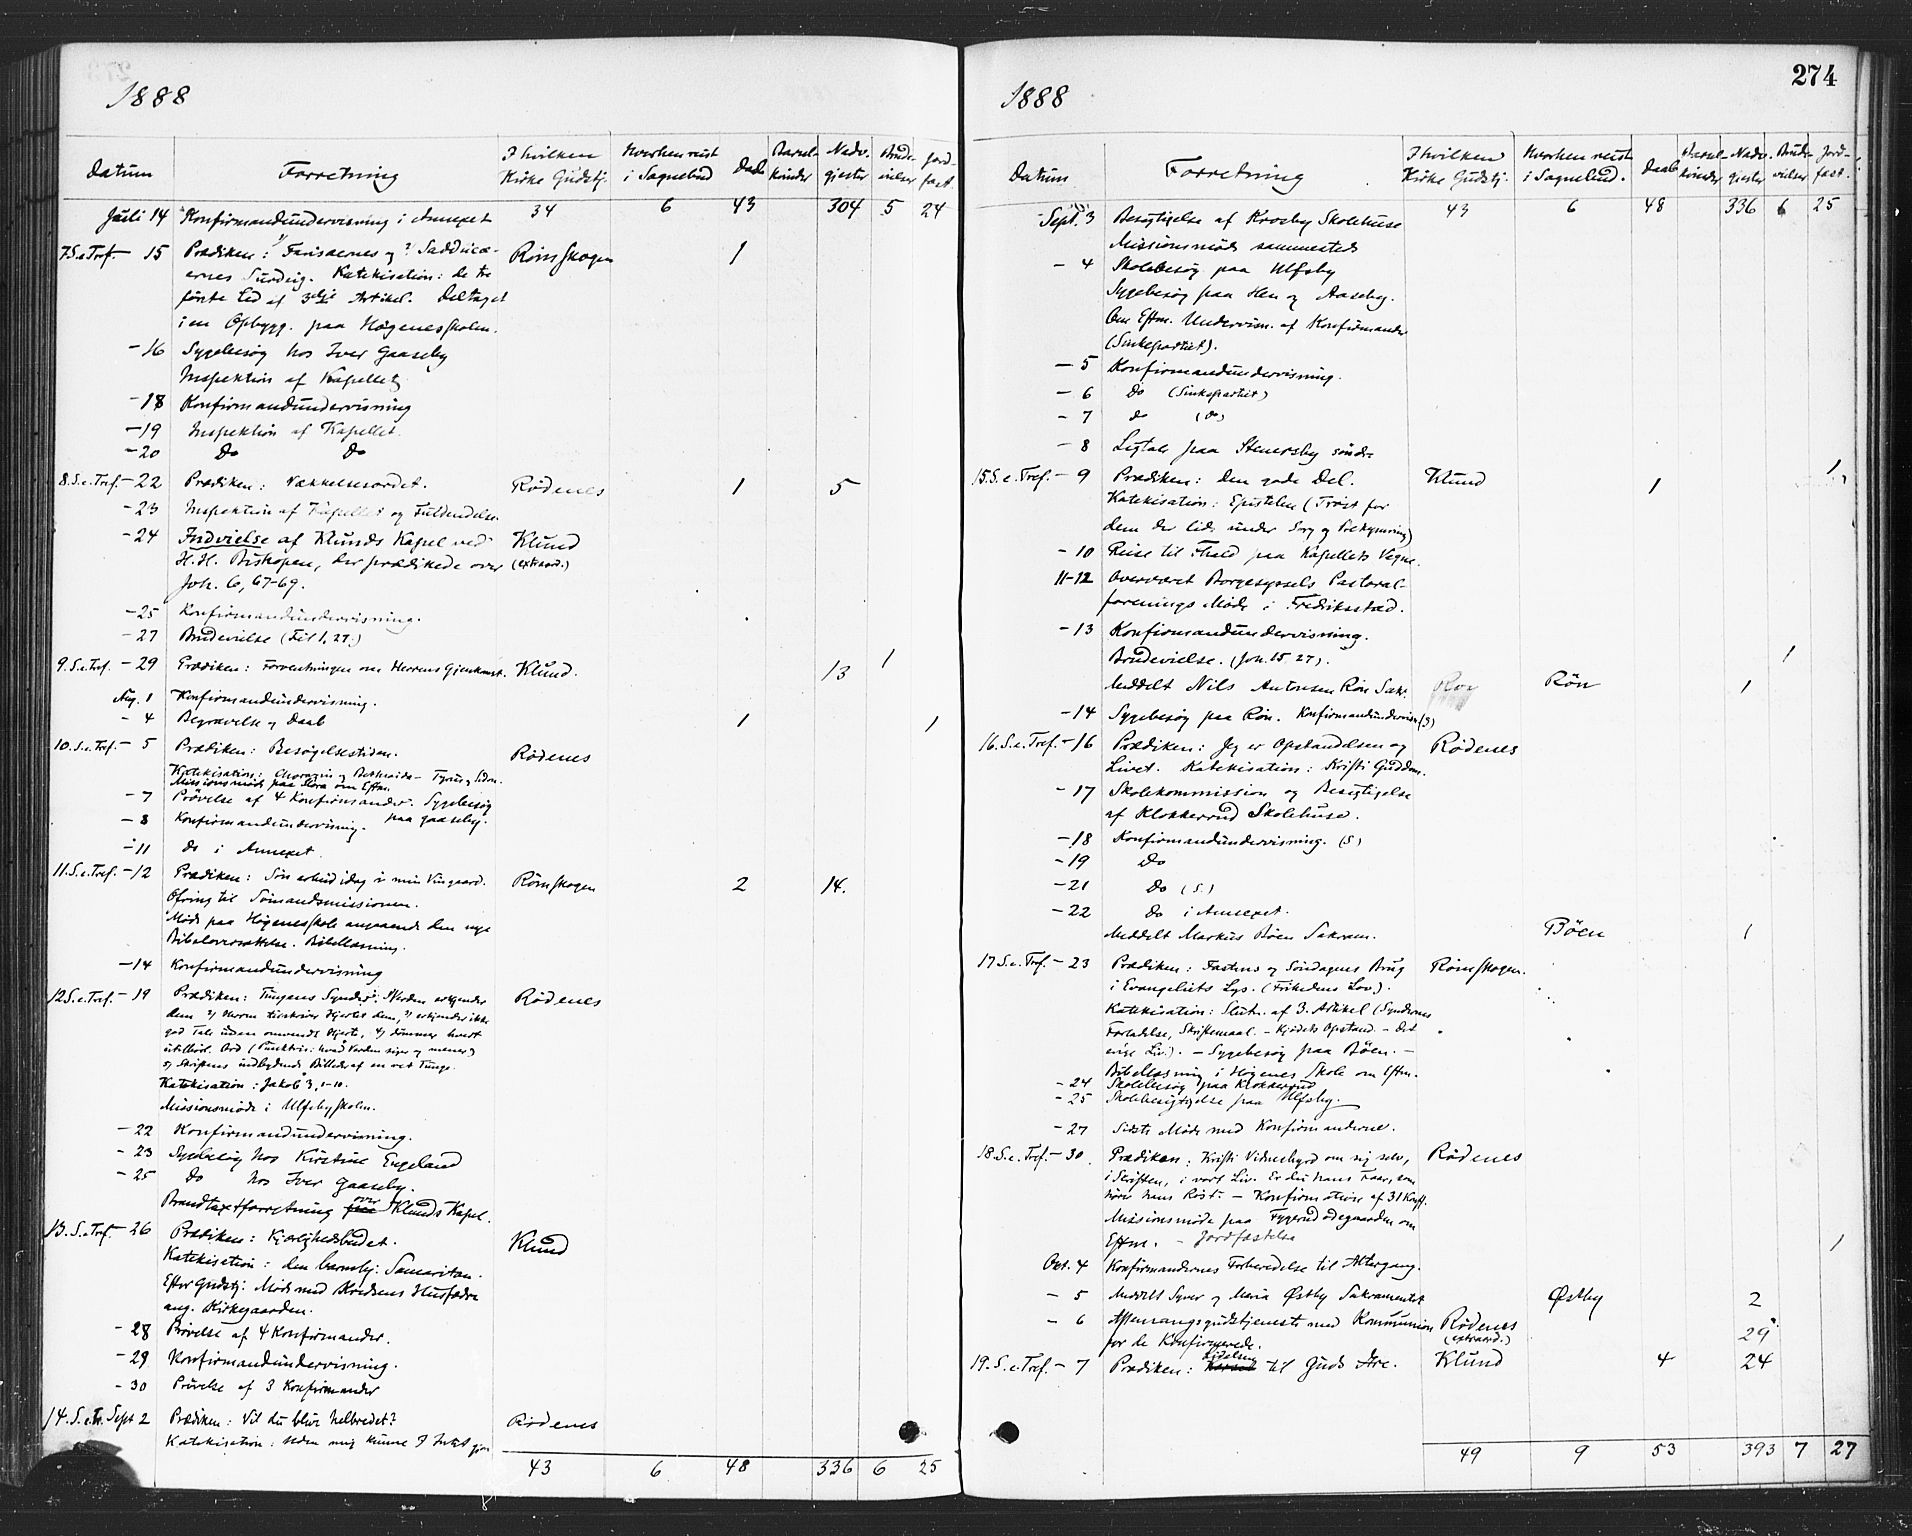 1888
Datum Forretning I hvilken Kirke Gudstj. Hvorhen reist i Sognebud Daab Barsel-kvinder Nadv. gjester Brude-vielser Jord-fæst.
Juli 14 Konfirmandundervisning i Annexet 34 6 43 304 5 24
7 S.e.Tref. - 15 Prædiken: Farisæernes og Sadducæ- Rømskogen 1
ernes Surdeig. Katekisation: de tre
første Led af 3die Artikel. Deltaget
i en Opbygg. paa Høgenesskolen.
- 16 Sygebesøg hos Iver Gaaseby
Inspektion af Kapellet
- 18 Konfirmandundervisning
- 19 Inspektion af Kapellet.
- 20 Do Do
8. S.e.Tref. - 22 Prædiken: Vækkelsesordet. Rødenes 1 5
- 23 Inspektion af Kapellet og Fuldendelse.
- 24 Indvielse af Klunds Kapel ved Klund
H.H. Biskopen, der prædikede over (extraord.)
Joh. 6, 67-69.
- 25 Konfirmandundervisning.
- 27 Brudevielse (Fil 1, 27.) 1
9. S.e.Tref. - 29 Prædiken: Forventningen om Herrens Gjenkomst. Klund. 13
Aug. 1 Konfirmandundervisning.
- 4 Begravelse og Daab 1 1
10. S.e.Tref. - 5 Prædiken: Besøgelsestiden. Rødenes
Katekisation: Chorazin og Bethsaida - Tyrus og Sidon.
Missionsmøde paa Flora om Eftm.
- 7 Prøvelse af 4 Konfirmander. Sygebesøg
paa Gaaseby.
- 8 Konfirmandundervisning.
- 11 do i Annexet.
11. S.e.Tref. - 12 Prædiken: Søn arbeid idag i min Vingaard. Rømskogen 2 14.
Ofring til Sømandsmissionen.
Møde paa Høgenesskole angaaende den nye
Bibeloversættelse. Bibellæsning.
- 14 Konfirmandundervisning
12 S.e.Tref. - 19 Prædiken: Tungens Synder: Verden erkjender Rødenes
dem 2) Hvorm tilskriver Hjertet dem, 3) erkjender ikke
god Tale uden omvendt Hjerte, 4) dømmer hvert
utilbørl. Ord (Punktvis: hvad Verden siger og mener)
5) Skriftens indbydende Billede af en ret Tunge.
Katekisation: Jakob 3, 1-10.
Missionsmøde i Ulfsbyskolen.
- 22 Konfirmandundervisning.
- 23 Sygebesøg hos Kirstine Engeland
- 25 do hos Iver Gaaseby.
Brandtaxtforretning paa over Klunds Kapel.
13. S.e.Tref. - 26 Prædiken: Kjærlighedsbudet. Klund
Katekisation: den barmhj. Samaritan.
Efter Gudstj. Møde med Kredsens Husfædre
ang. Kirkegaarden.
- 28 Prøvelse af 4 Konfirmander.
- 29 Konfirmandundervisning.
- 30 Prøvelse af 3 Konfirmander
14. S.e.Tr. Sept 2 Prædiken: Vil du blive helbredet? Rødenes
Katekisation: uden mig kunne I Intet gjøre
43 6 48 336 6 25
274
1888
Datum Forretning I hvilken Kirke Gudstj. Hvorhen reist i Sognebud. Daab Barsel-kvinder Nadv. gjester Brude-vielser Jord-fæst.
Sept. 3 Besigtigelse af Kroeby Skolehuse 43 6 48 336 6 25
Missionsmøde sammesteds
- 4 Skolebesøg paa Ulfsby
Sygebesøg paa Hen og Aaseby.
Om Eftm. Undervisn. af Konfirmander
(Sinkepartiet).
- 5 Konfirmandundervisning.
- 6 Do (Sinkepartiet)
- 7 do (do)
- 8 Ligtale paa Stenersby søndre 1
15. S.e.Tref. - 9 Prædiken: den gode Del. Klund 1
Katekisation: Epistelen (Trøst for
dem der lide under Sorg og Bekymring)
- 10 Reise til Fhald paa Kapellets Vegne.
11-12 Overværet Borgesyssels Pastoral-
forenings Møde i Fredriksstad.
- 13 Konfirmandundervisning.
Brudevielse. (Joh. 15, 27). 1
Meddelt Nils Antonsen Røn Sakr. Røn 1
- 14 Sygebesøg paa Røn. Konfirmandundervisn (S)
16. S.e.Tref. - 16 Prædiken: Jeg er Opstandelsen og Rødenes
Livet. Katekisation: Kristi Guddom.
- 17 Skolekommission og Besigtigelse
af Klokkerrud Skolehuse.
- 18 Konfirmandundervisning. (S)
- 19 Do
- 21 Do (S.)
- 22 Do i Annexet.
Meddelt Markus Bøen Sakram. Bøen 1
17 S.e.Tref. - 23 Prædiken: Fastens og Søndagens Brug Rømskogen.
i Evangeliets Lys. (Frihedens Lov).
Katekisation: Slutn. af 3. Artikel (Syndernes
Forladelse, Skriftemaal. - Kjødets Opstand. - Det
evige Liv.). - Sygebesøg paa Bøen. -
Bibellæsning i Høgenes Skole om Eftm.
- 24 Skolebesøg paa Klokkerrud
- 25 Skolebesigtigelse paa Ulfsby.
- 27 Sidste Møde med Konfirmanderne.
18. S.e.Tref. - 30. Prædiken: Kristi Vidnesbyrd om sig selv, Rødenes
i Skriften, i vort Liv. Er du hans Faar, som
høre hans Røst. - Konfirmation af 31 Konff.
Missionsmøde paa Fygerud ødegaarden om
Eftm. - Jordfæstelse 1
Oct. 4 Konfirmandernes Forberedelse til Altergang.
- 5 Meddelt Syver og Maria Østby Sakramentet Østby 2
- 6 Aftensangsgudstjeneste med Kommunion Rødenes 29
for de Konfirmerede. (extraord.)
19. S.e.Tref. - 7 Prædiken: Lidelsen til Guds Ære. Klund 4 24
49 9 53 393 7 27